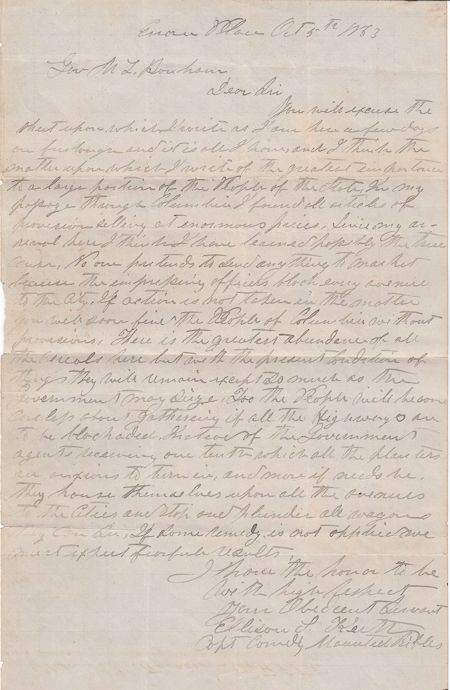 Place Oct 5th 1863
Gov M L Bonham
Dear Sir
You will excuse the
sheet upon which I write as I am here a few days
on furlough and it is all I have and I think the
matter upon which I write of the greatest importance
to a large portion of the People of the State. In my
passage through Columbia I found all articles of
provision selling at enormous prices. Since my ar-
rival here I think I have learned possibly the true
cause, No one pretends to send anything to market
because the impressing officers block every avenue
to the City. If action is not taken in the matter
you will soon find the People of Columbia without
provisions. Here is the greatest abundance of all
the cereals here but with the present condition of
things they will remain except so much as the
Government may seize. Too the People will become
careless about gathering if all the Highways are
to be blockaded. Instead of the Government
agents receiving one tenth which all the planters
are anxious to turn in, and more if needs be,
they house themselves upon all the avenues
to the Cities and stop and plunder all wagons
they can see. If some remedy is not applied we
must expect fearful results
I have the honor to be
with high Respect
Your Obedient Servant
Ellison S. Keitt
Capt Comdg Mounted Rifles